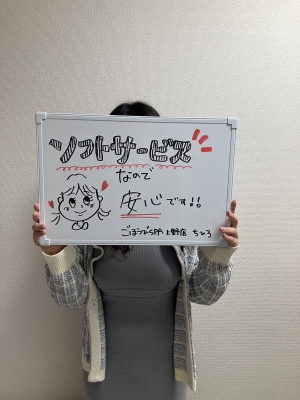 ソフトサービス
なので
安心です!!
ごほうびSPA 上野店 ちひろ